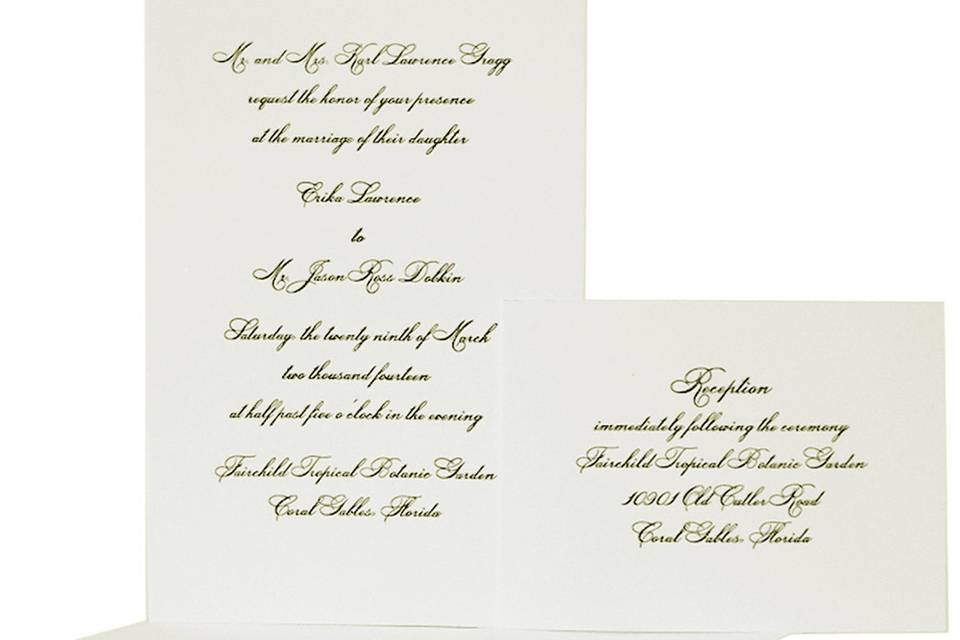 Mr. and Mrs. Karl Lawrence Gragg
request the honor of your presence
at the marriage of their daughter
Erika Lawrence
to
Mr. Jason Ross Dobkin
Saturday, the twenty ninth of March
two thousand fourteen
at half past five o'clock in the evening
Fairchild Tropical Botanic Garden
Coral Gables, Florida
Reception
immediately following the ceremony
Fairchild Tropical Botanic Garden
10901 Old Cutler Road
Coral Gables, Florida